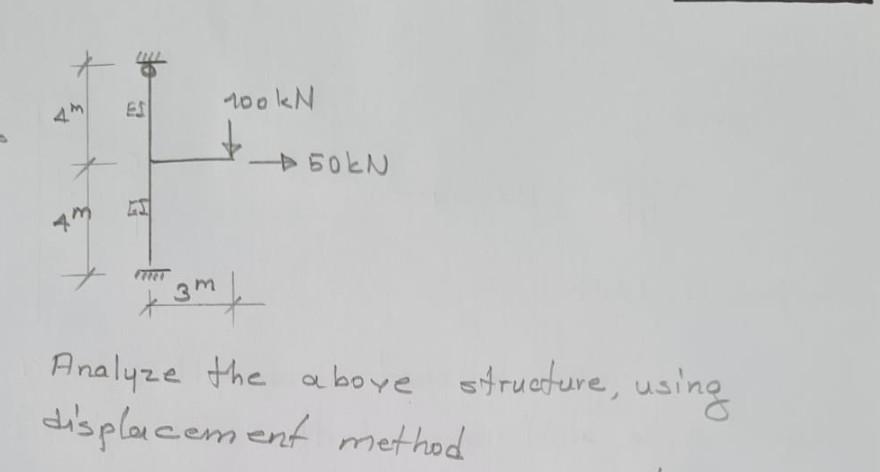 100kN
4m EI
50kN
4m EI
3m
Analyze the above structure, using
displacement method